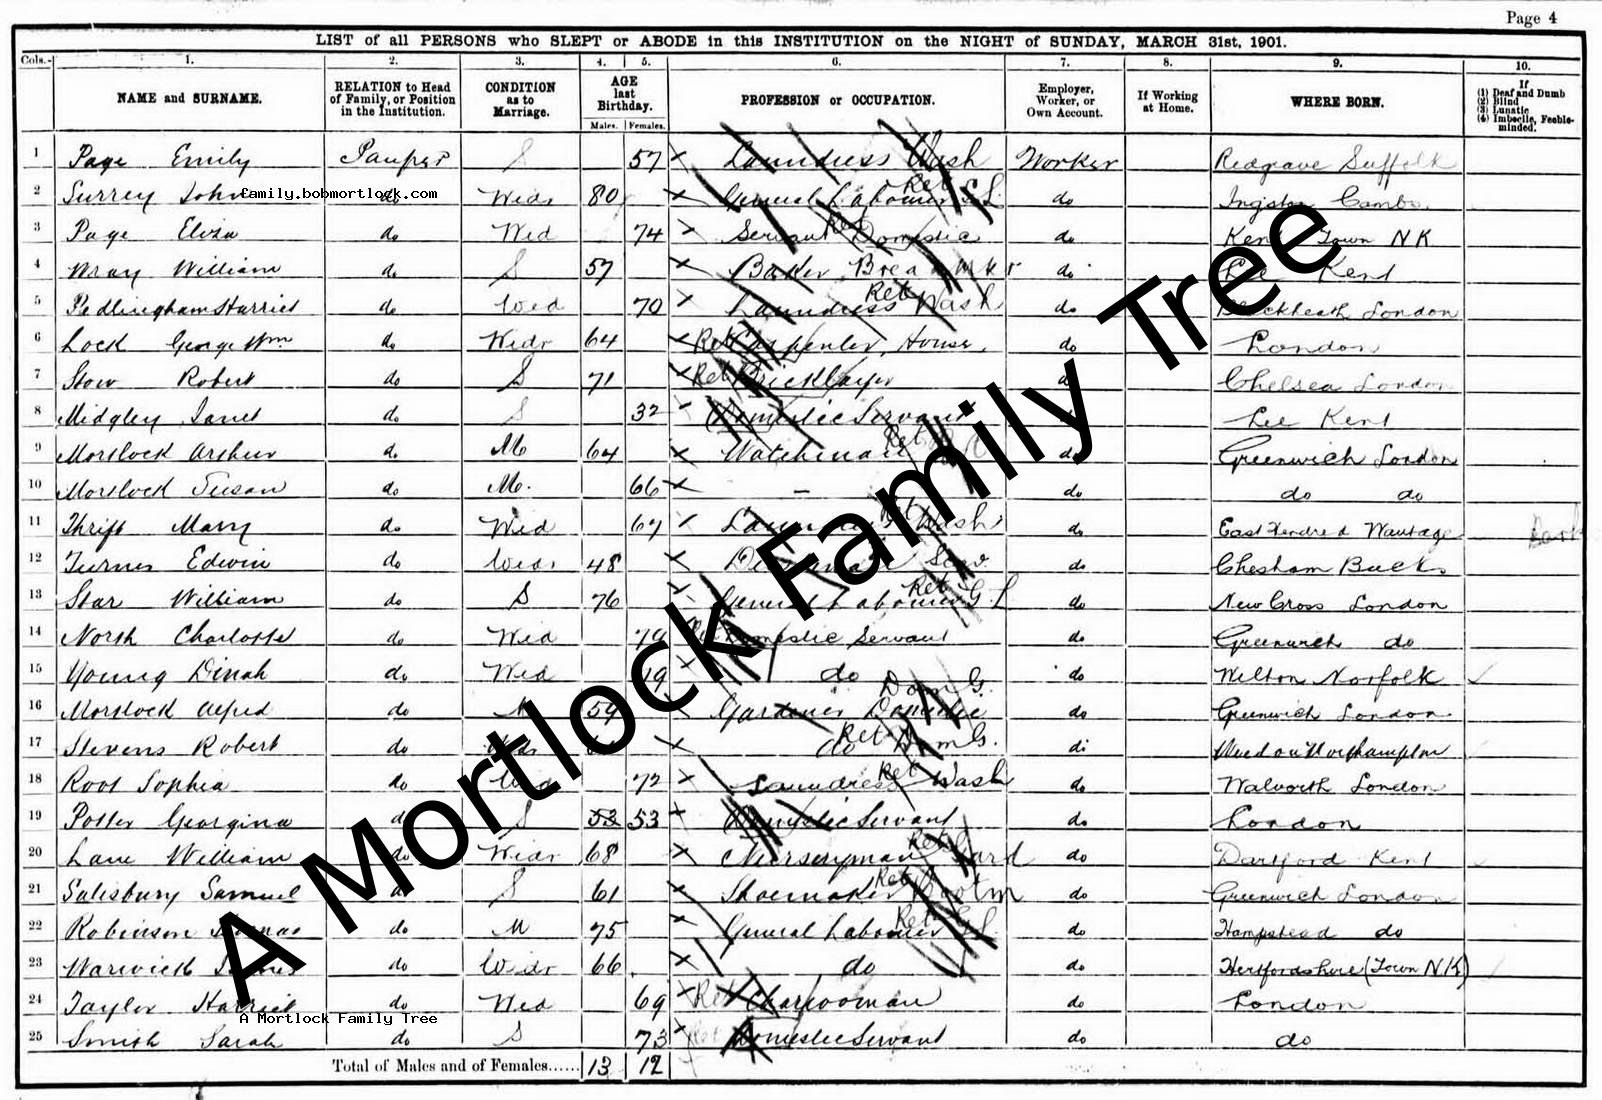 Page 4
LIST of all PERSONS who SLEPT or ABODE in this INSTITUTION on the NIGHT of SUNDAY, MARCH 31st, 1901.
Cols.- 1. 2. 3. 4. 5. 6. 7. 8. 9. 10.
NAME and SURNAME. RELATION to Head of Family, or Position in the Institution. CONDITION as to Marriage. AGE last Birthday. Males. Females. PROFESSION or OCCUPATION. Employer, Worker, or Own Account. If Working at Home. WHERE BORN. If (1) Deaf and Dumb (2) Blind (3) Lunatic (4) Imbecile, Feeble-minded.
1 Page Emily Pauper S 57 X Laundress Wash Worker Redgrave Suffolk
2 Surrey John do Widr 80 X General Labourer Ret G.L. do Cambs
family.bobmortlock.com
3 Page Eliza do Wid 74 X Servant Domestic Ret do Kent Town NK
4 Wray William do S 57 X Baker Bread mkr do Lee Kent
5 Pedlingham Harriet do Wid 70 X Laundress Ret Wash do Blackheath London
6 Lock George Wm do Widr 64 X Ret Carpenter, House, do London
7 Stow Robert do S 71 X Ret Bricklayer do Chelsea London
8 Midgley Janet do S 32 X Domestic Servant do Lee Kent
9 Mortlock Arthur do M 64 X Watchman Ret do Greenwich London
10 Mortlock Susan do M. 66 X — do do do
11 Thrift Mary do Wid 67 X Laundress Ret Wash do East Hendred Wantage
12 Turner Edwin do Widr 48 X Serv. do Chesham Bucks
13 Star William do S 76 X General Labourer Ret G.L do New Cross London
14 North Charlotte do Wid 79 Domestic Servant do Greenwich do
15 Young Dinah do Wid X do do Wilton Norfolk
16 Mortlock Alfred do M 59 X Gardener Domestic Dom G. do Greenwich London
17 Stevens Robert do Widr X do Ret Dom G. do Weedon Northampton
18 Root Sophia do Wid 72 X Laundress Ret Wash do Walworth London
19 Potter Georgina do S 53 53 X Domestic Servant do London
20 Lane William do Widr 68 X Nurseryman Ret Gard do Dartford Kent
21 Salisbury Samuel do S 61 X Shoemaker Ret Bootm do Greenwich London
22 Robinson Thomas do M 75 X General Labourer Ret G.L. do Hampstead do
23 Warwick James do Widr 66 X do do Hertfordshire (Town N.K)
24 Taylor Harriet do Wid 69 X Ret Charwoman do London
25 Smith Sarah do S 73 X Ret Domestic Servant do do
A Mortlock Family Tree
Total of Males and of Females...... 13 12
A Mortlock Family Tree